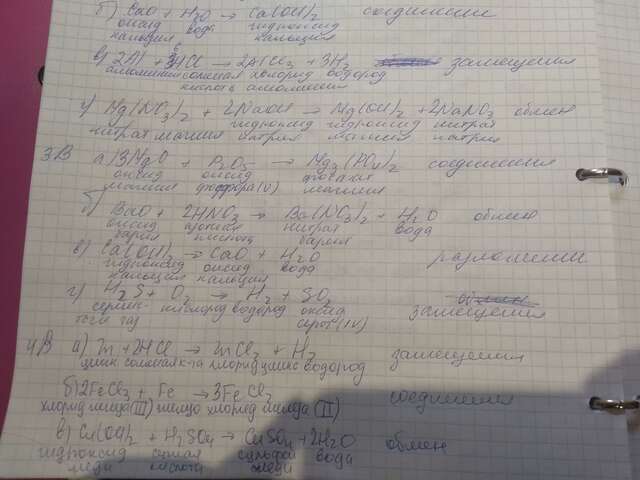 б) CaO + H2O → Ca(OH)2 соединения
оксид вода гидроксид
кальция кальция
в) 2Al + 6HCl → 2AlCl3 + 3H2 замещения
алюминий соляная хлорид водород
кислота алюминия
г) Mg(NO3)2 + 2NaOH → Mg(OH)2 + 2NaNO3 обмен
нитрат магния гидроксид гидроксид нитрат
натрия магния натрия
3В а) 3MgO + P2O5 → Mg3(PO4)2 соединения
оксид оксид фосфат
магния фосфора(V) магния
б) BaO + 2HNO3 → Ba(NO3)2 + H2O обмен
оксид азотная нитрат вода
бария кислота бария
в) Ca(OH)2 → CaO + H2O разложения
гидроксид оксид вода
кальция кальция
г) H2S + O2 → H2 + SO2 замещения
серни- кислород водород оксид
стый газ серы(IV)
4В а) Zn + 2HCl → ZnCl2 + H2 замещения
цинк соляная к-та хлорид цинка водород
б) 2FeCl3 + Fe → 3FeCl2 соединения
хлорид железа(III) железо хлорид железа(II)
в) Cu(OH)2 + H2SO4 → CuSO4 + 2H2O обмен
гидроксид серная сульфат вода
меди кислота меди